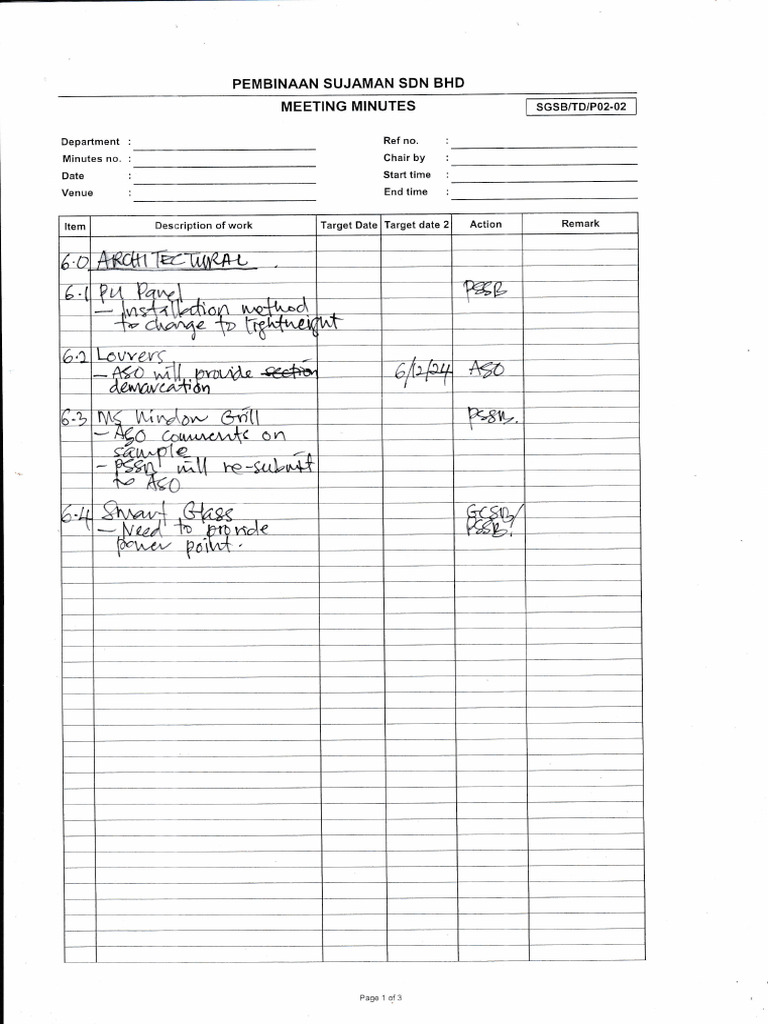 PEMBINAAN SUJAMAN SDN BHD
MEETING MINUTES
SGSB/TD/P02-02
Department : Ref no. :
Minutes no. : Chair by :
Date : Start time :
Venue : End time :
Item Description of work Target Date Target date 2 Action Remark
6.0 ARCHITECTURAL
6.1 PU Panel PSSB
- Installation method
to change to lightweight
6.2 Louvers
- ASO will provide section 6/12/24 ASO
demarcation
6.3 MS Window Grill PSSB.
- ASO comments on
sample
- PSSB will re-submit
to ASO
6.4 Smart Glass GCSB/
- Need to provide PSSB.
power point.
Page 1 of 3